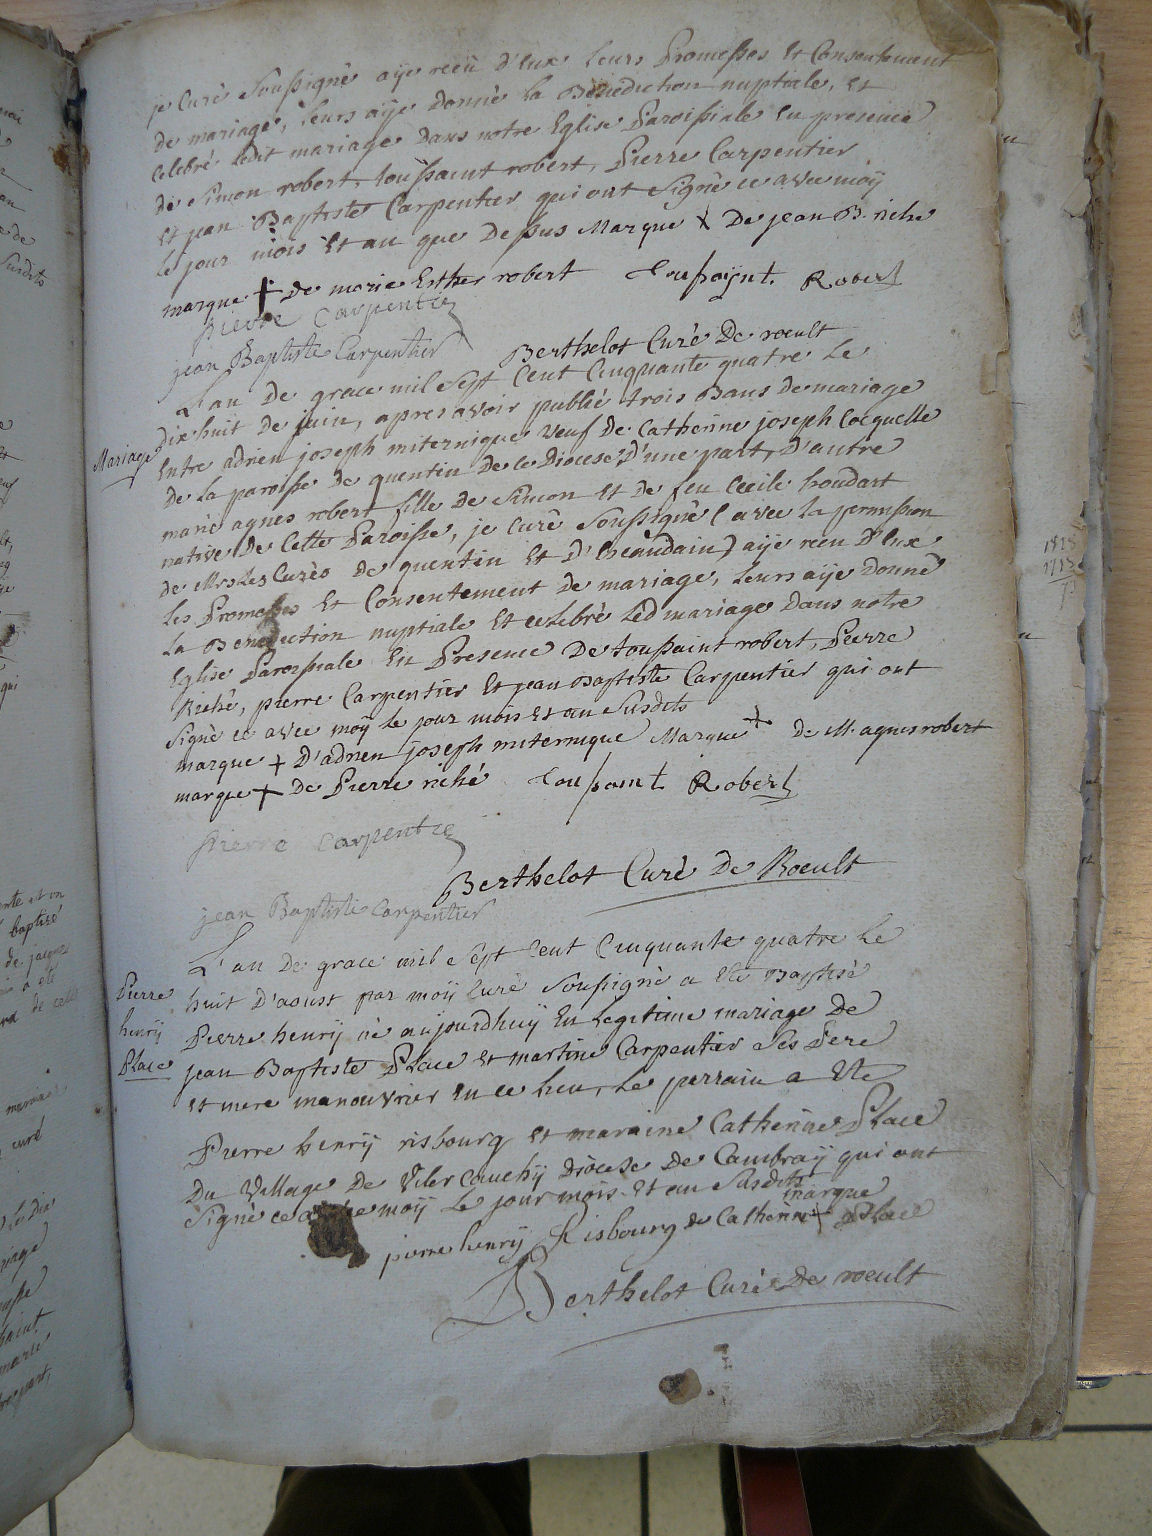 je Curé Soussigné aÿe reçü d'eux leurs Promesses Et Consentement
de mariage, leurs aÿe donné la Bénédiction nuptiale, Et
Celebré ledit mariage dans notre Eglise Paroissiale En presence
de Simon robert, toussaint robert, Pierre Carpentier
Et jean Baptiste Carpentier qui ont Signé ce avec moÿ
le jour mois Et an que Dessus Marque X De jean B. riche
marque + de marie Esther robert toussaynt. Robert
Pierre Carpentie
jean Baptiste Carpentier Berthelot Curé De rœult
L'an De grace mil Sept Cent Cinquante quatre le
dix huit de juin, apres avoir publié trois Bans de mariage
Mariage
Entre adrien joseph miternique Veuf de Catherine joseph Cocquelle
De la paroisse de quentin De ce Diocese D'une part, D'autre
marie agnes robert fille de Simon Et de feu Cecile houdart
native De Cette Paroisse, je Curé Soussigné (avec la permission
de Mrs Les Curés De quentin Et D'Escaudain) aÿe reçu D'Eux
les Promesses Et Consentement De mariage, leurs aÿe Donné
la Benediction nuptiale Et celebré led mariage Dans notre
Eglise Paroissiale En Presence De toussaint robert, Pierre
Riché, pierre Carpentier Et jean Baptiste Carpentier qui ont
Signé ce avec moÿ le jour mois Et an Susdits
marque + D'adrien joseph miternique Marque + de M. agnes robert
marque + De Pierre riché toussaint Robert
Pierre Carpentie
Berthelot Curé De Rœult
jean Baptiste Carpentier
L'an De grace mil Sept Cent Cinquante quatre le
huit D'aoust par moÿ Curé Soussigné a Eté Baptisé
Pierre
henrÿ
Place
Pierre henrÿ né aujourdhuÿ En Legitime mariage De
jean Baptiste Place Et martine Carpentier Ses Pere
Et mere manouvrier En ce lieu, Le parrain a Eté
Pierre henrÿ risbourg Et maraine Catherine Place
Du Village De Viler Cauchÿ Diocese De Cambraÿ qui ont
Signé ce avec moÿ le jour mois Et an Susdits
marque
pierre henrÿ Risbourg de Catherine + Place
Berthelot Curé De rœult